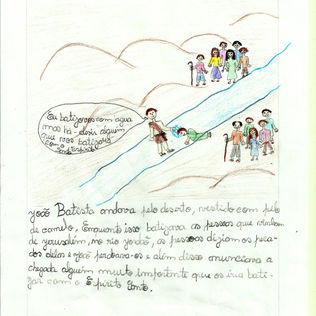 Eu batizovos com água
mas há-devir alguém
que vos batizará
com o
Espírito
João Batista andava pelo deserto, vestido com pelo
de camelo, Enquanto isso batizava as pessoas que vinham
de jerusalém, no rio jordão, as pessoas diziam os peca-
dos deles e João perdoava-os e além disso anunciava a
chegada alguém muito importante que os iria bati-
zar com o Espírito Santo.